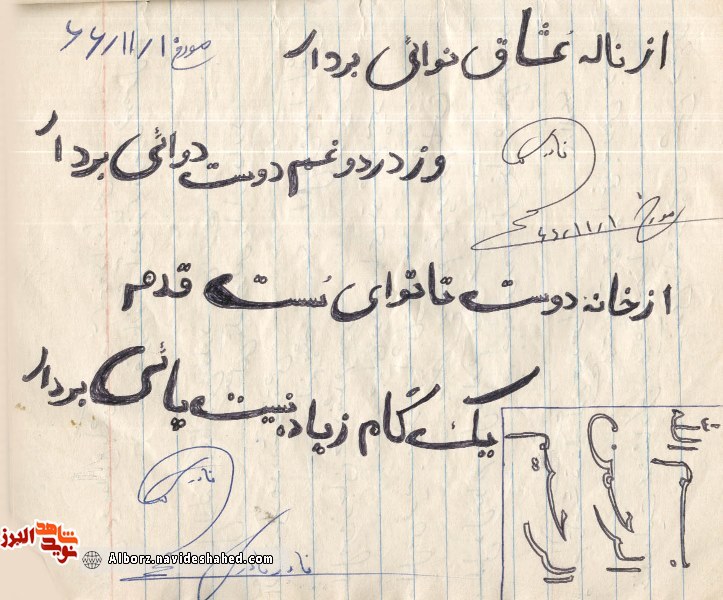 از ناله عشاق نوائی بردار
مورخ ۶۶/۱۱/۱
وز درد و غم دوست دوائی بردار
نادر
مورخ ۶۶/۱۱/۱
از خانه دوست تا توای سست قدم
یک گام زیاده نیست پائی بردار
بسم الله
الرحمن
الرحیم
نادر
نادر
نوید شاهد البرز
Alborz.navideshahed.com